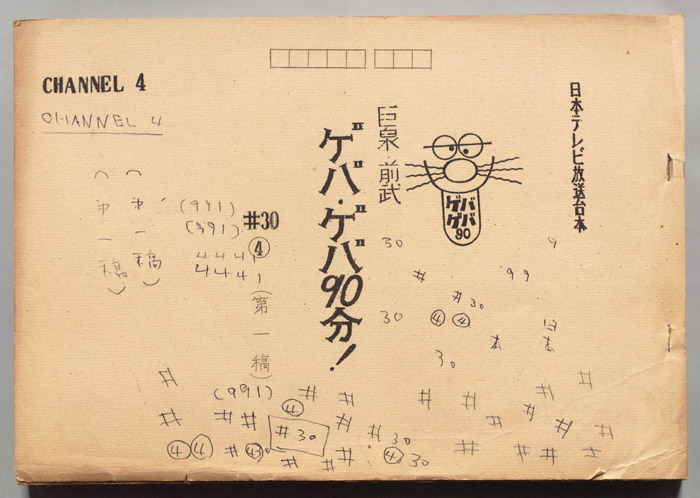 CHANNEL 4
CHANNEL 4
日本テレビ放送台本
巨泉・前武
ゲバ・ゲバ90分!
ゲバ
ゲバ
90
#30
④
(第一稿)
(第一稿)
(第一稿)
(991)
(991)
444
444
30
9
#
99
# 30
30
④ ④
日
本
本
30
# # # # # #
(991)
④
# # # # # # #
# 30
# 30
④ ④
# ④ 30
④ 30
# # # # #